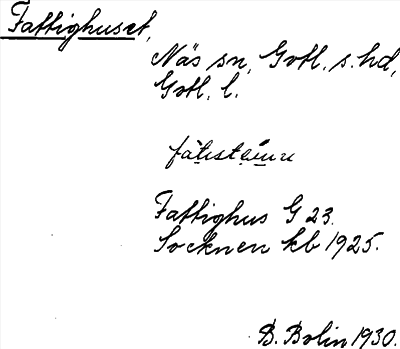 Fattighuset,
Näs sn, Gotl. s. hd,
Gotl. l.
Fattighus G 23.
Socknen kb 1925.
B. Bolin 1930.